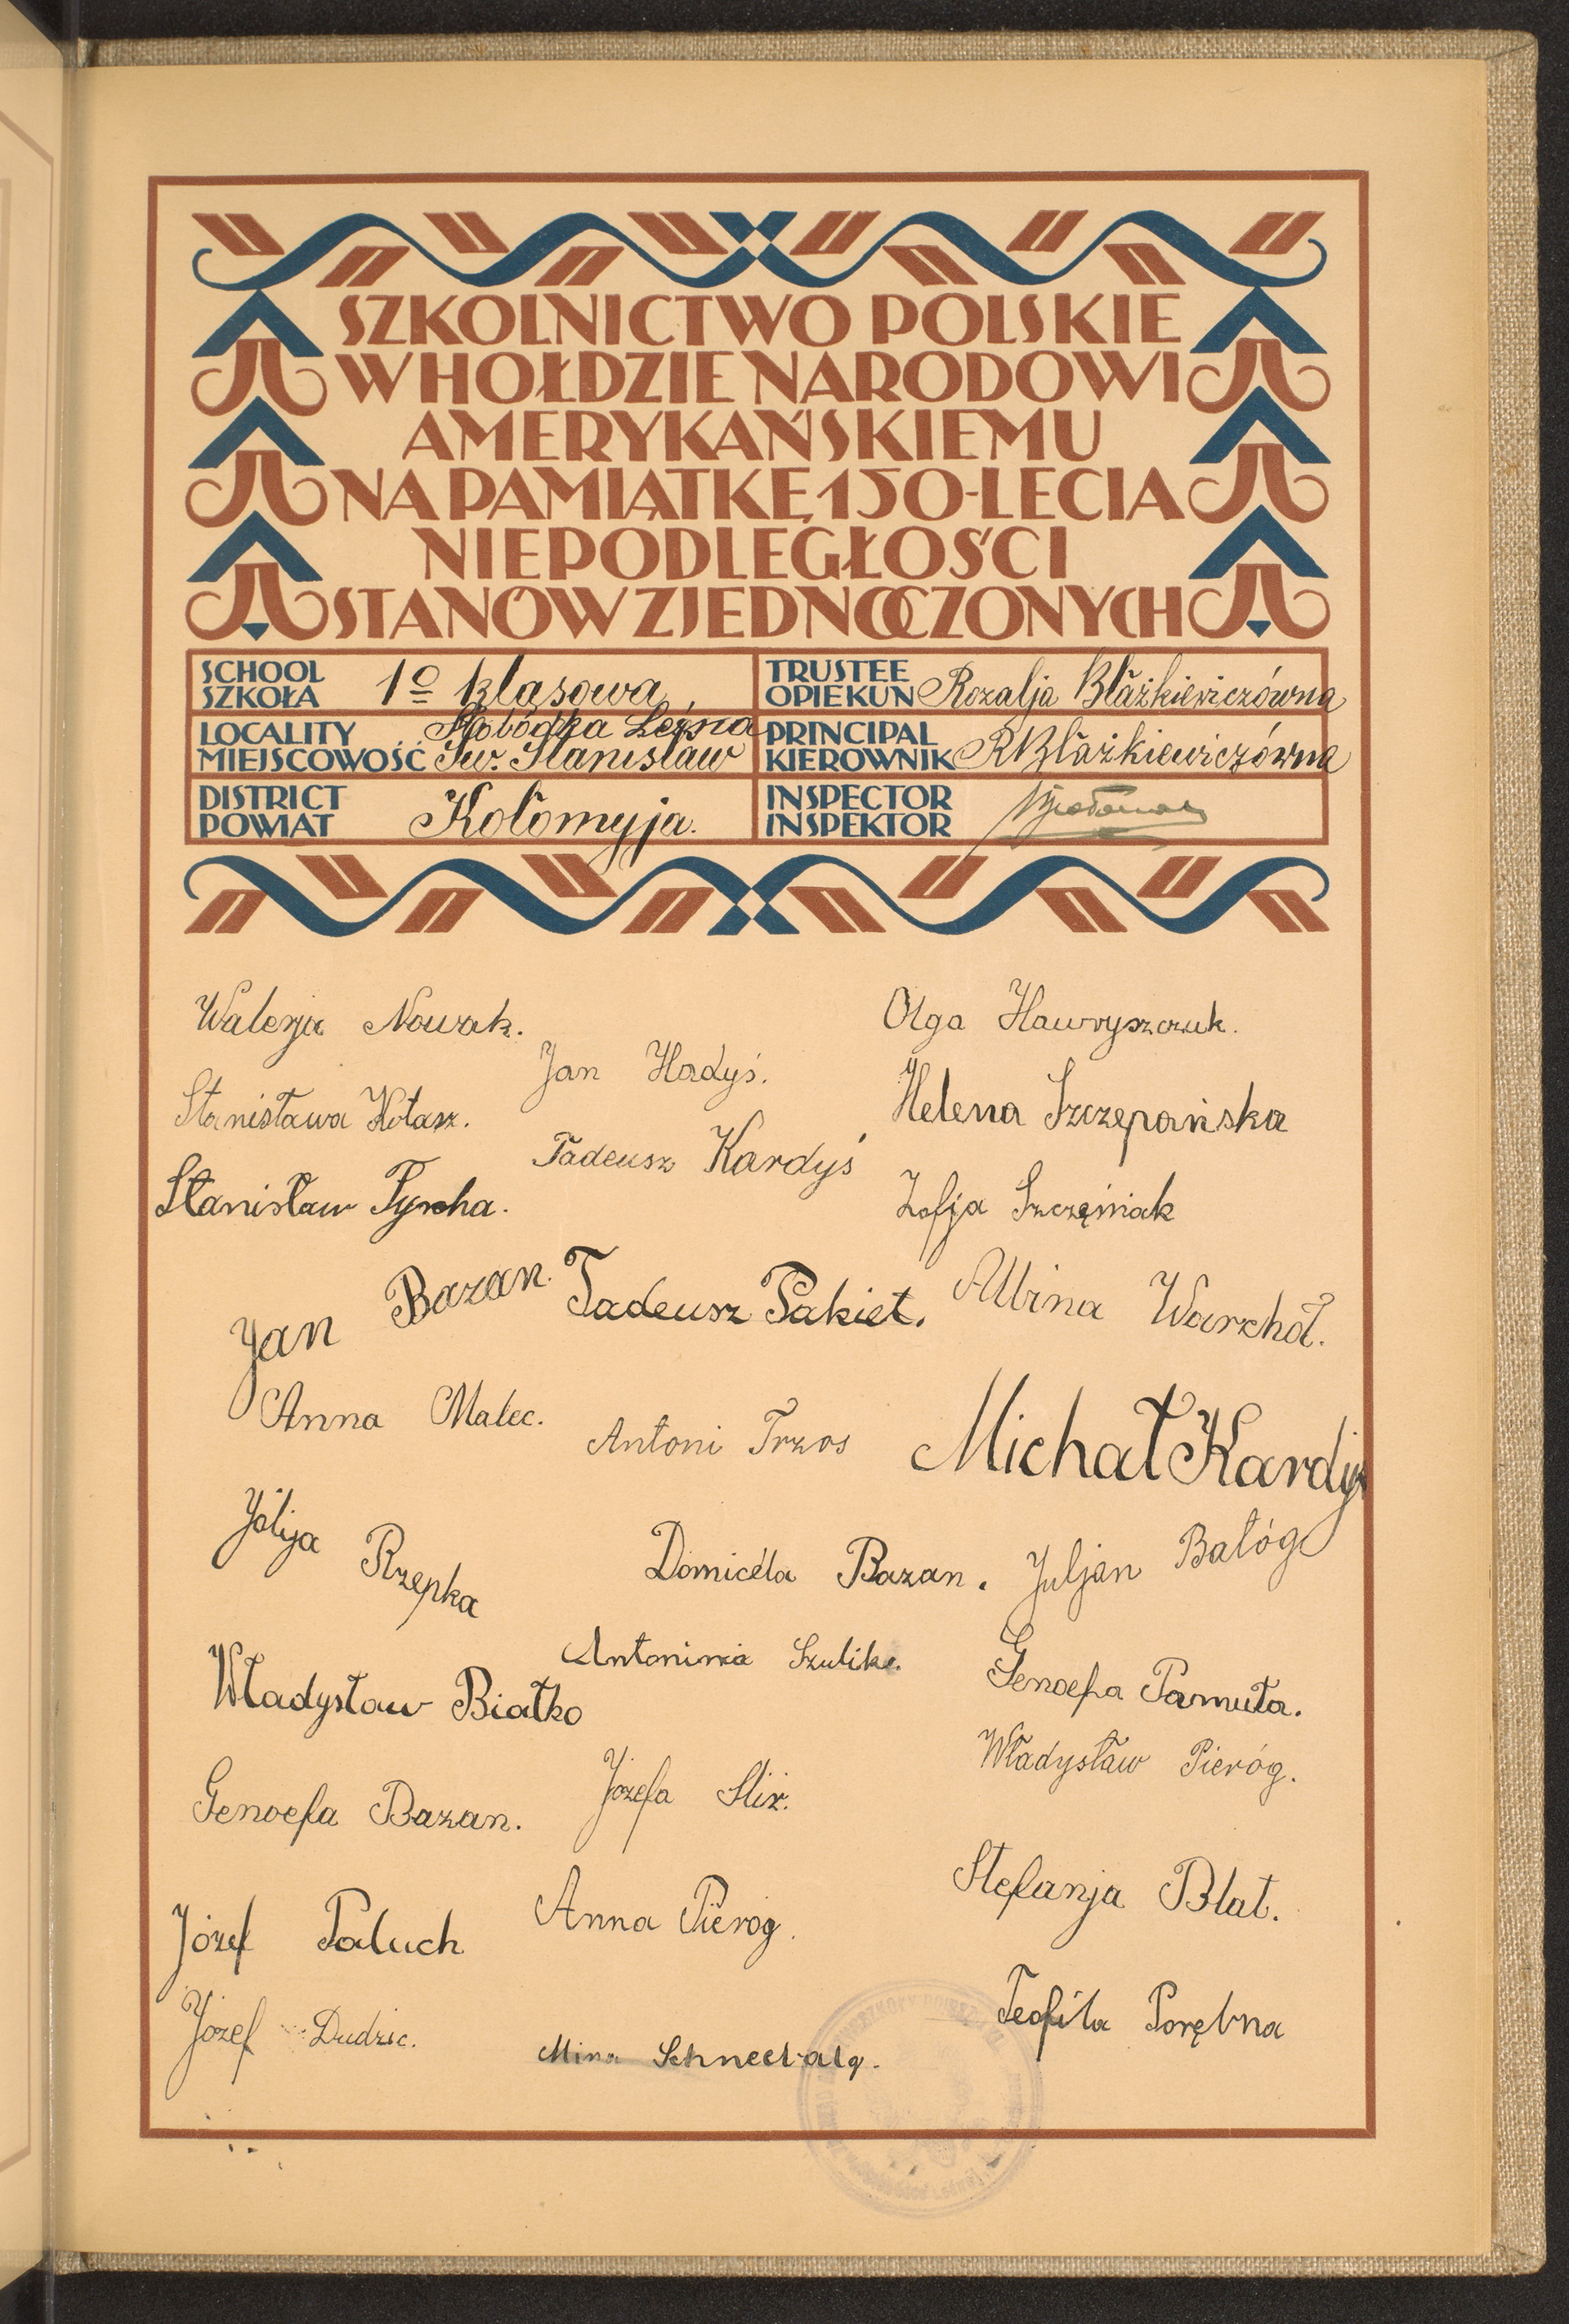 SZKOLNICTWO POLSKIE
W HOŁDZIE NARODOWI
AMERYKAŃSKIEMU
NA PAMIĄTKĘ 150-LECIA
NIEPODLEGŁOŚCI
STANÓW ZJEDNOCZONYCH
SCHOOL
SZKOŁA
1º klasowa
TRUSTEE
OPIEKUN
Rozalja Błażkiewiczówna
LOCALITY
MIEJSCOWOŚĆ
Słobódka Leśna
Św. Stanisław
PRINCIPAL
KIEROWNIK
R Błażkiewiczówna
DISTRICT
POWIAT
Kołomyja.
INSPECTOR
INSPEKTOR
Walerja Nowak.
Olga Hawryszczuk.
Jan Hadyś.
Stanisława Kołasz.
Helena Szczepańska
Tadeusz Kardyś
Stanisław Pyrcha.
Zofja Szczęśniak
Jan Bazan.
Tadeusz Pakiet.
Albina Warchoł.
Anna Malec.
Antoni Trzos
Michał Kardyś
Jólija Rzepka
Domicéla Bazan.
Juljan Bałóg
Władysław Białko
Antonina Szulike.
Genoefa Pamuła.
Władysław Pieróg.
Genoefa Bazan.
Józefa Sliż.
Stefanja Blat.
Józef Paluch
Anna Pieróg.
Teofila Porębna
Józef Dudzic.
Mina Schneebalg.